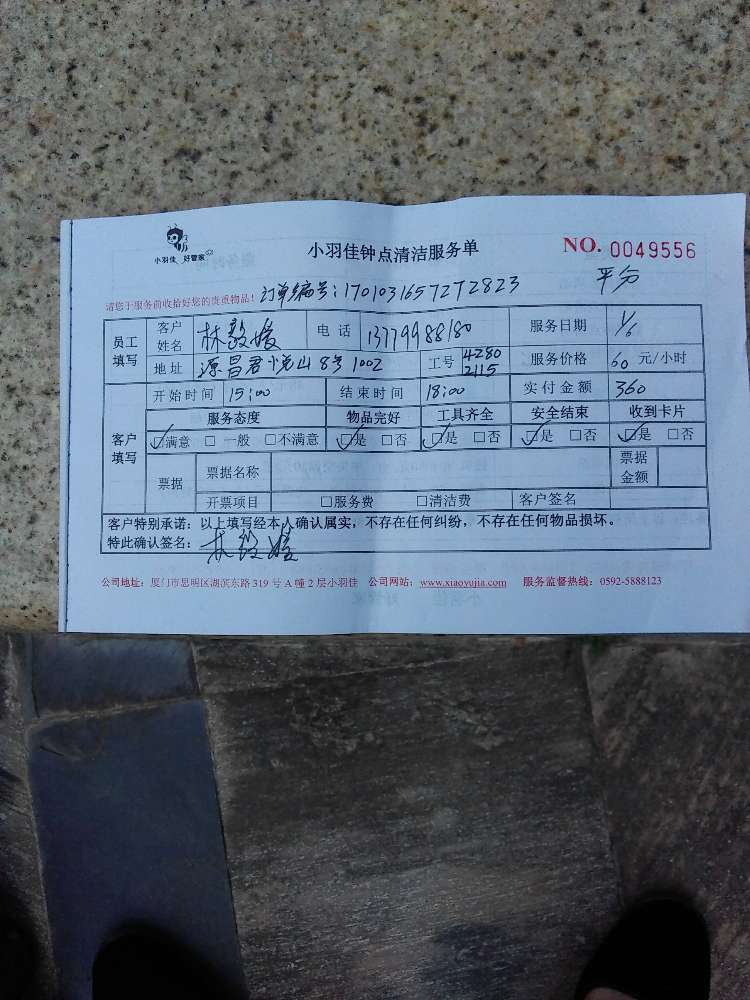 小羽佳 好管家
小羽佳钟点清洁服务单
NO. 0049556
请您于服务前收拾好您的贵重物品! 订单编号:1701031657272823 平分
员工填写 客户姓名 林毅媛 电话 13779988180 服务日期 1/6
地址 源昌君悦山8号1002 工号 4280 2115 服务价格 60 元/小时
开始时间 15:00 结束时间 18:00 实付金额 360
客户填写 服务态度 物品完好 工具齐全 安全结束 收到卡片
☑满意 □一般 □不满意 ☑是 □否 ☑是 □否 ☑是 □否 ☑是 □否
票据 票据名称 票据金额
开票项目 □服务费 □清洁费 客户签名
客户特别承诺:以上填写经本人确认属实,不存在任何纠纷,不存在任何物品损坏。
特此确认签名: 林毅媛
公司地址:厦门市思明区湖滨东路 319 号 A 幢 2 层小羽佳 公司网站:www.xiaoyujia.com 服务监督热线:0592-5888123